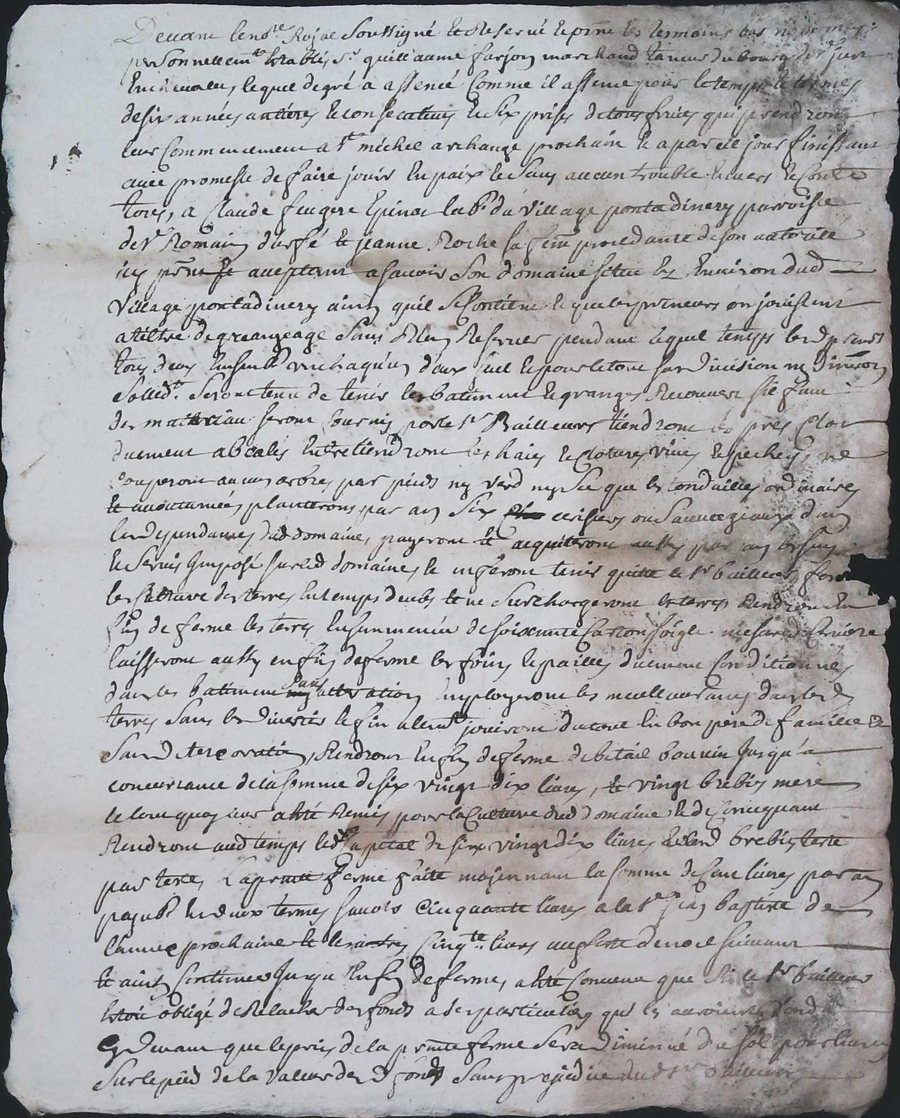 Devant le no.re Royal Soussigné et Reservé et pñts les temoins bas
personnellem.t Estably, s.r guillaume farjon marchand taneur du bourg
lequel de gré a assencé Comme il assence pour le temps et termes
de six années entieres et consecutives et six prises de tous fruits qui prendront
leur Commencement a s.t michel archange prochain et a pareil jour finissant
avec promesse de faire jouir En paix et Sans aucun trouble Envers et Contre
tores, a Claude feugere Epinat lab.r du Village pontadinery parroisse
de s.t Romain durfé et jeanne Roche sa fem procedante de son autorité
icy pñts et aceptant a scavoir Son domaine scitué Es Environ dud
Village pontadinery ainsy quil Se Contient et que les preneurs en jouissent
a tittre de grangeage Sans Rien Reserver pendant lequel temps lesd
tous deux Ensemb. un chaqun d'eux seul et pour le tout sans division ny
Solid.t Seront tenu de tenir les batiment et granges Recouvert sil faut
des materiau seront fournis par le s.r Bailleur tiendront les prés
duement abealés Entretiendront les haies et clotures vives et seches, ne
Couperont aucuns arbres par pieds ny verd ny sec que les Conduilles ordinaires
et acoutumées, planterons par an six cerisiers ou Sauvageaux dans
les dependances dud domaine, payeront et acquiteront aussy par an les
et Servis Imposé sur led domaine, et en feront tenir quitte le s.r bailleur, feront
les Culture des terres En temps dues et ne Surchargeront les terres Rendront En
fin de ferme les terres Ensemencée de soixante Cartons soigle mesure de Cerviere
laisseront aussy en fin de ferme les foins et pailles duement Conditionnés
dans les batiment sans alteration Employeront les dans les d
terres Sans les divertir et fin alens jouiront du tout En bon pere de famille et
Sans deterioration, Rendront En fin de ferme de betail bovin Jusqu'a
concurrance de la Somme de six vingt dix livres, et vingt brebis mere
le tout quoy leur a eté Remis pour la Culture dud domaine et desiringuant
Rendront aud temps led Capital de six vingt dix livres et lesd brebis teste
par teste, La pñte ferme faite moyennant la somme de Cent livres par an
payab. En deux termes scavoir Cinquante livres a la s.t jean baptiste de
l'année prochaine et les autres Cinq.te livres au feste de noel suivant
et ainsy Continuer Jusqu En fin de ferme, a eté Convenu que Si le s.r bailleur
Etoit obligé de Relacher des fonds a des particuliers qui les auroient
Cy devant que le prix de la pñte ferme Sera diminué du sol pour livre
Sur le pied de la valeur desd fonds Sans prejudice aud s.r bailleur